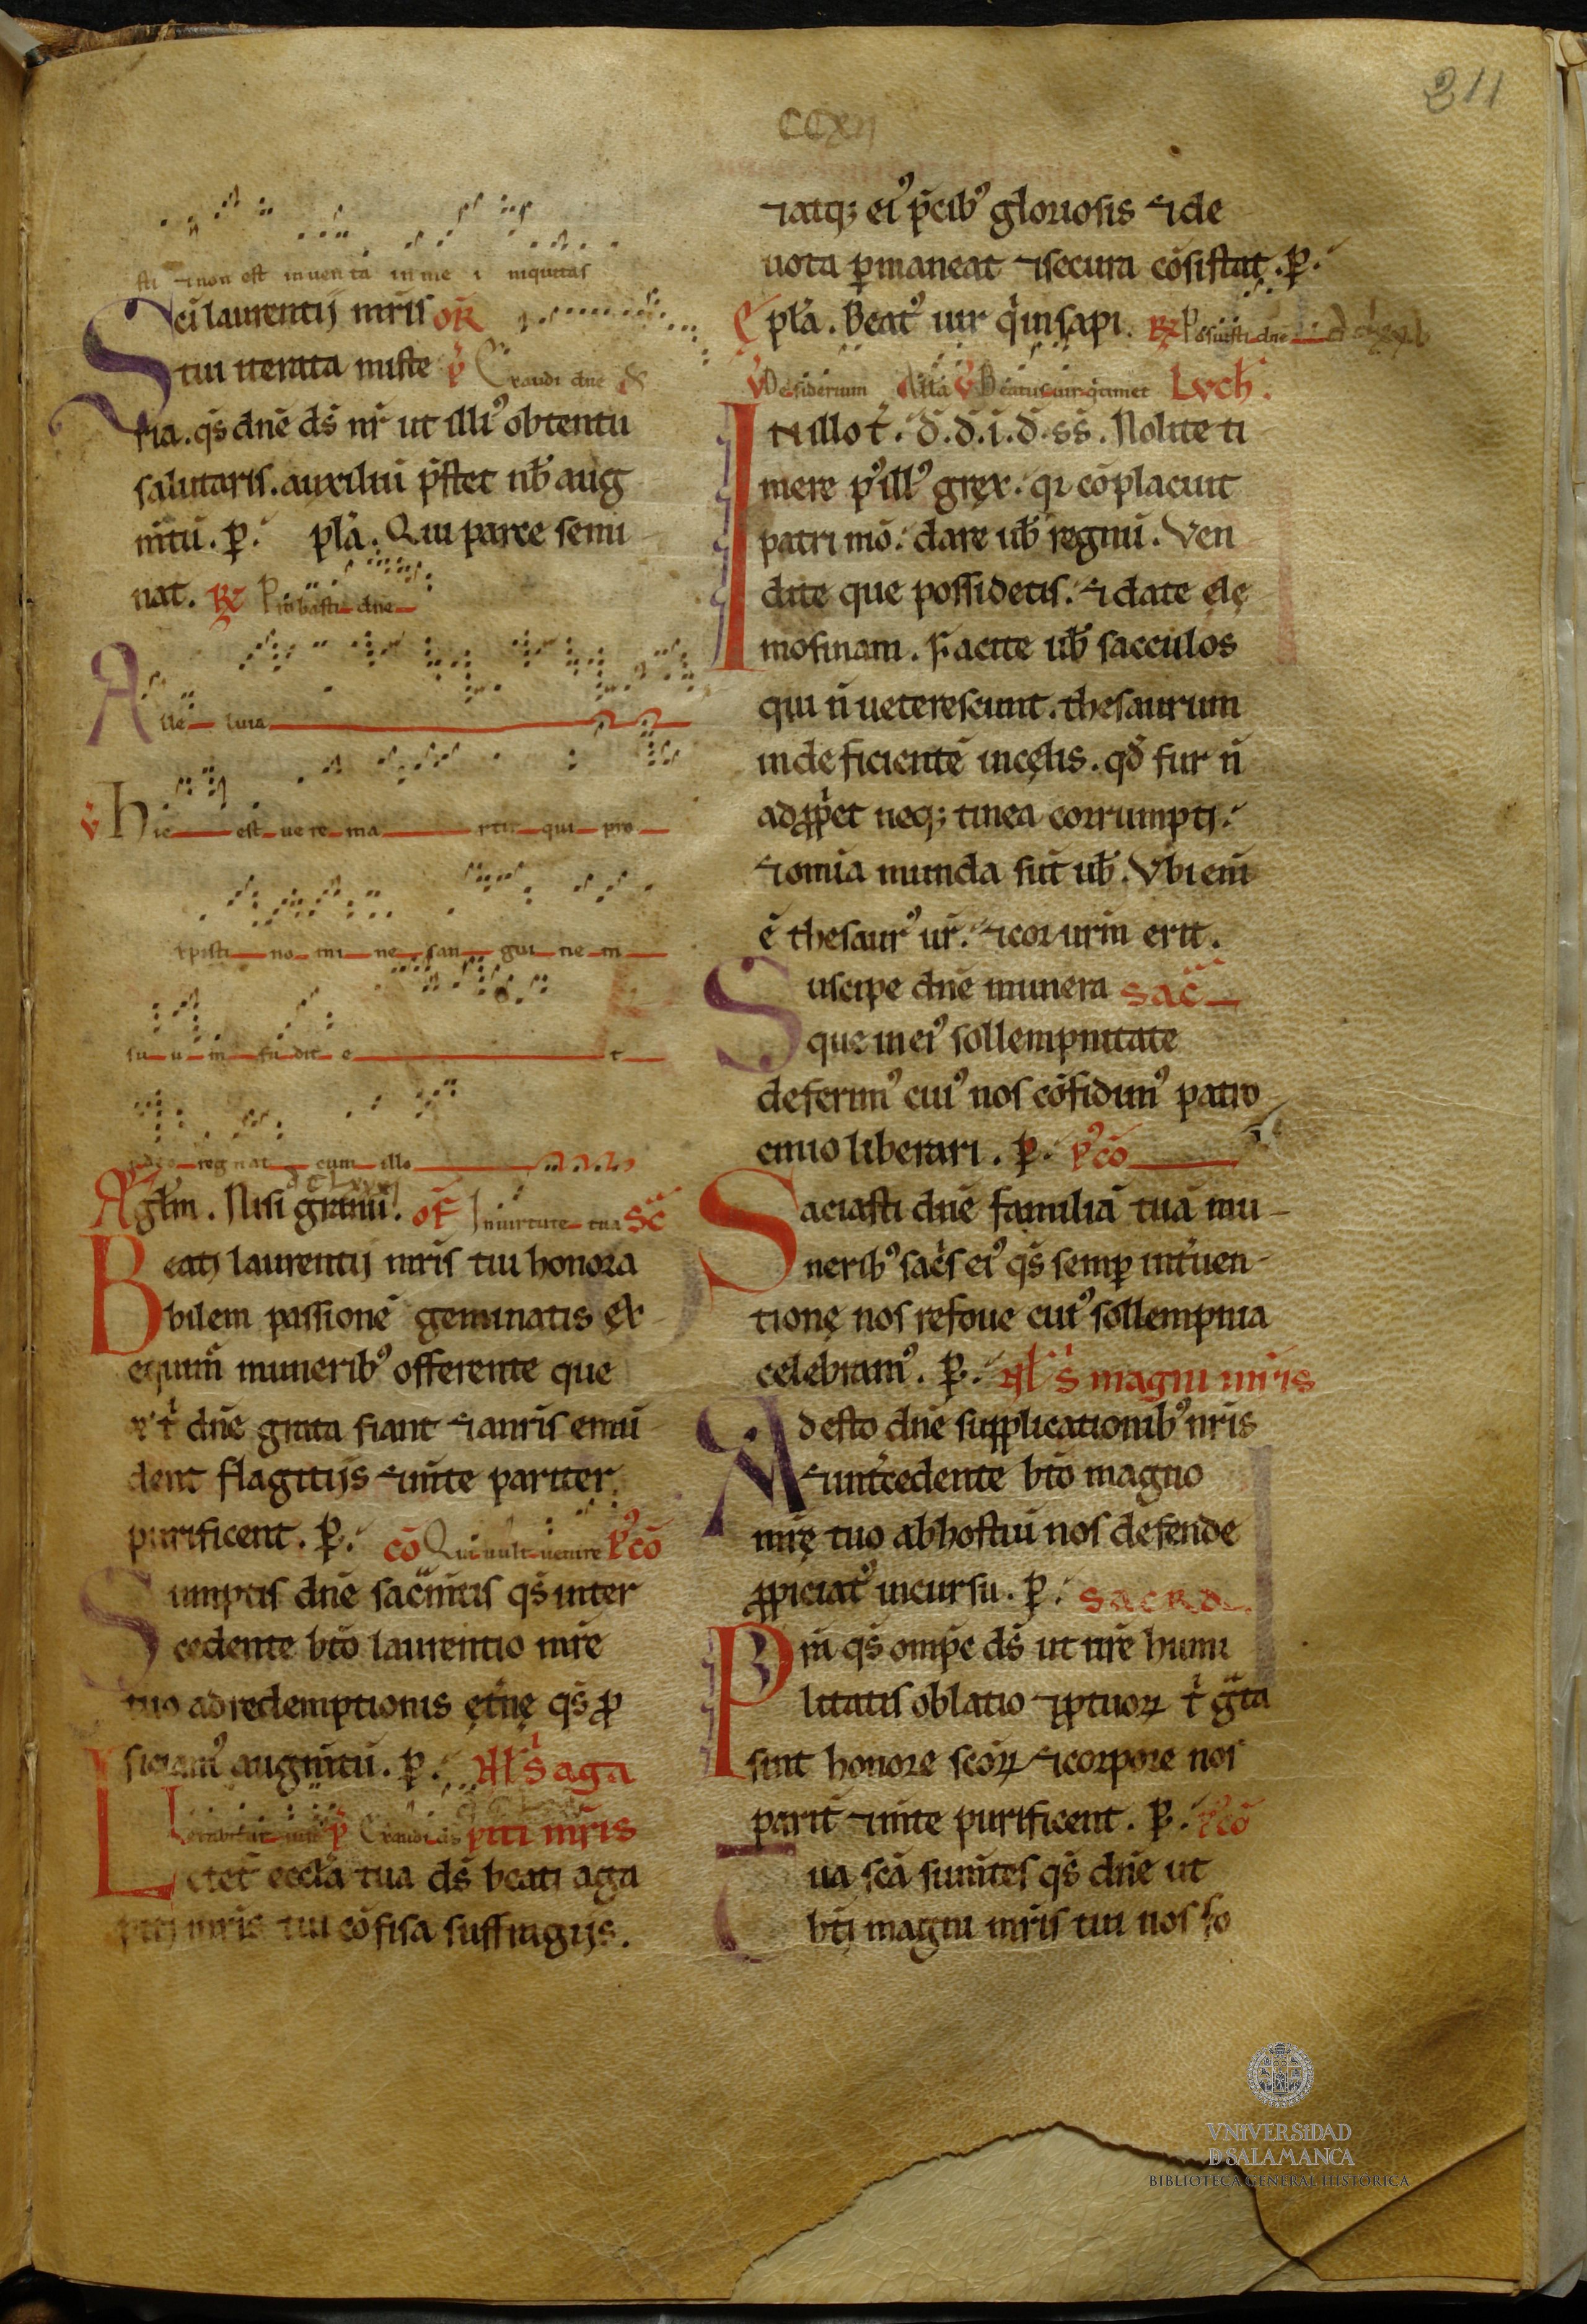 CCXII
211
sti ⁊non est inuenta in me i niquitas
Sc̄i laurentij mr̄is or̄
tui iterata miste p̄ Exaudi dn̄e
ria. qs̄ dn̄e ds̄ nr̄ ut illiꝰ obtentu
salutaris. auxiliū p̄stet nb̄ aug
m̄tū. p. pl̄a. Qui parce semi
nat. R Probasti dn̄e
Alle luia
v̄ Hic est uere ma rtir qui pro
xpisti no mi ne san gui ne m
su u m fu dit e t
regnat cum illo
Agl̄m. Nisi granū. of̄ In uirtute tua Sc̄
Beatj laurentij mr̄is tui honora
bilem passionē geminatis ex
equim̄ muneribꝰ offerente que
t̄ dn̄e grata fiant ⁊anris emū
dent flagitijs ⁊m̄te pariter
purificent. p. cō Qui uult uenire pꝰcō
Sumptis dn̄e sac̄m̄tis qs̄ inter
cedente bt̄o laurentio mr̄e
tuo ad redemptionis ęt̄nę qs̄ ꝓ
ficiamꝰ augm̄tū. p. Al̄s aga
Letabitur iustꝰ p̄ Exaudi ds̄ piti mr̄is
Letet̄ eccl̄a tua ds̄ beati aga
pitj mr̄is tui cōfisa suffragijs.
⁊atqꝫ eiꝰ p̄cibꝰ gloriosis ⁊ de
uota ꝑmaneat ⁊secura cōsistat. p.
Ep̄la. Beatꝰ uir q̄ in sapi. R Posuisti dn̄e
v̄ Desiderium All̄a v̄ Beatus uir q̄ timet Luch̄.
In illo t̄. d̄. d̄. i. d̄. ss̄. Nolite ti
mere pꝰillꝰ gręx. qı cōplacuit
patri mō. dare ub̄ regnū. Ven
dite que possidetis. ⁊ date elę
mosinam. Facite ub̄ sacculos
qui n̄ ueterescunt. thesaurum
indeficientē in cęlis. qd̄ fur n̄
adꝓp̄et neqꝫ tinea corrumpit.
⁊omīa munda sūt ub̄. Vbi eni
ē thesaurꝰ ur̄. ⁊cor urm̄ erit.
Suscipe dn̄e munera sac̄
que in eiꝰ sollempnitate
deferimꝰ cuiꝰ nos cōfidimꝰ patro
cinio liberari. p. pꝰcō
Saciasti dn̄e familiā tuā mu
neribꝰ sac̄s eiꝰ qs̄ semꝑ int̄uen
tionę nos refoue cuiꝰ sollempnia
celebramꝰ. p. Al̄s magni mr̄is
Adesto dn̄e supplicationibꝰ nr̄is
⁊int̄cedente bt̄o magno
mr̄ę tuo ab hostiū nos defende
ꝓpiciatꝰ incursu. p. sacra
Prā qs̄ omp̄e ds̄ ut nr̄e humi
litatis oblatio ⁊ꝓ tuoꝝ t̄ gr̄ta
sint honore sc̄oꝝ ⁊corpore nos
parit̄ ⁊m̄te purificent. p. pꝰcō
Tua sc̄a sum̄tes qs̄ dn̄e ut
bt̄j magni mr̄is tui nos fo
VNiVERSiDAD
D SALAMANCA
BIBLIOTECA GENERAL HISTÓRICA